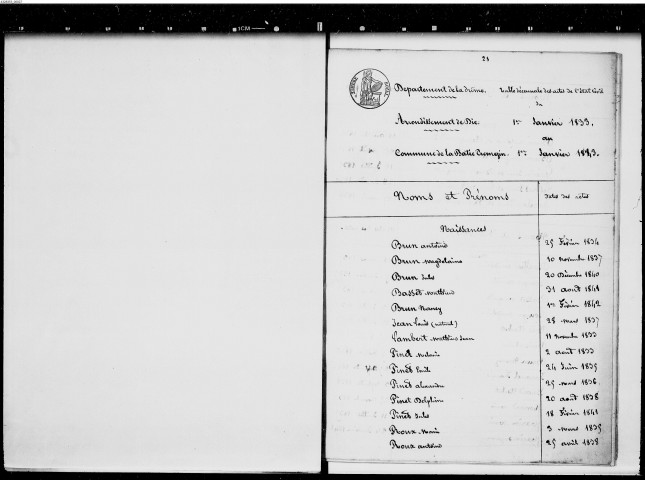 1CM
21
Département de la drôme. Table décennale des actes de l'état civil
du
Arrondissement de Die. 1er Janvier 1833.
au
Commune de la Batie Cremezin. 1er Janvier 1843.
Noms et Prénoms Dates des actes
Naissances
Brun antoine 25 Février 1834
Brun Magdelaine 10 Novembre 1837
Brun Jules 20 Décembre 1840
Basset 31 août 1841
Brun Nancy 1er Février 1842
Jean Louis (naturel) 28 mars 1837
Lambert Mathieu Jean 11 Novembre 1833
Pinet 2 août 1833
Pinet Emile 24 Juin 1835
Pinet alexandre 25 mars 1836
Pinet Delphine 20 août 1838
Pinet Jules 18 Février 1841
Roux Marie 3 Mars 1835
Roux antoine 25 avril 1838